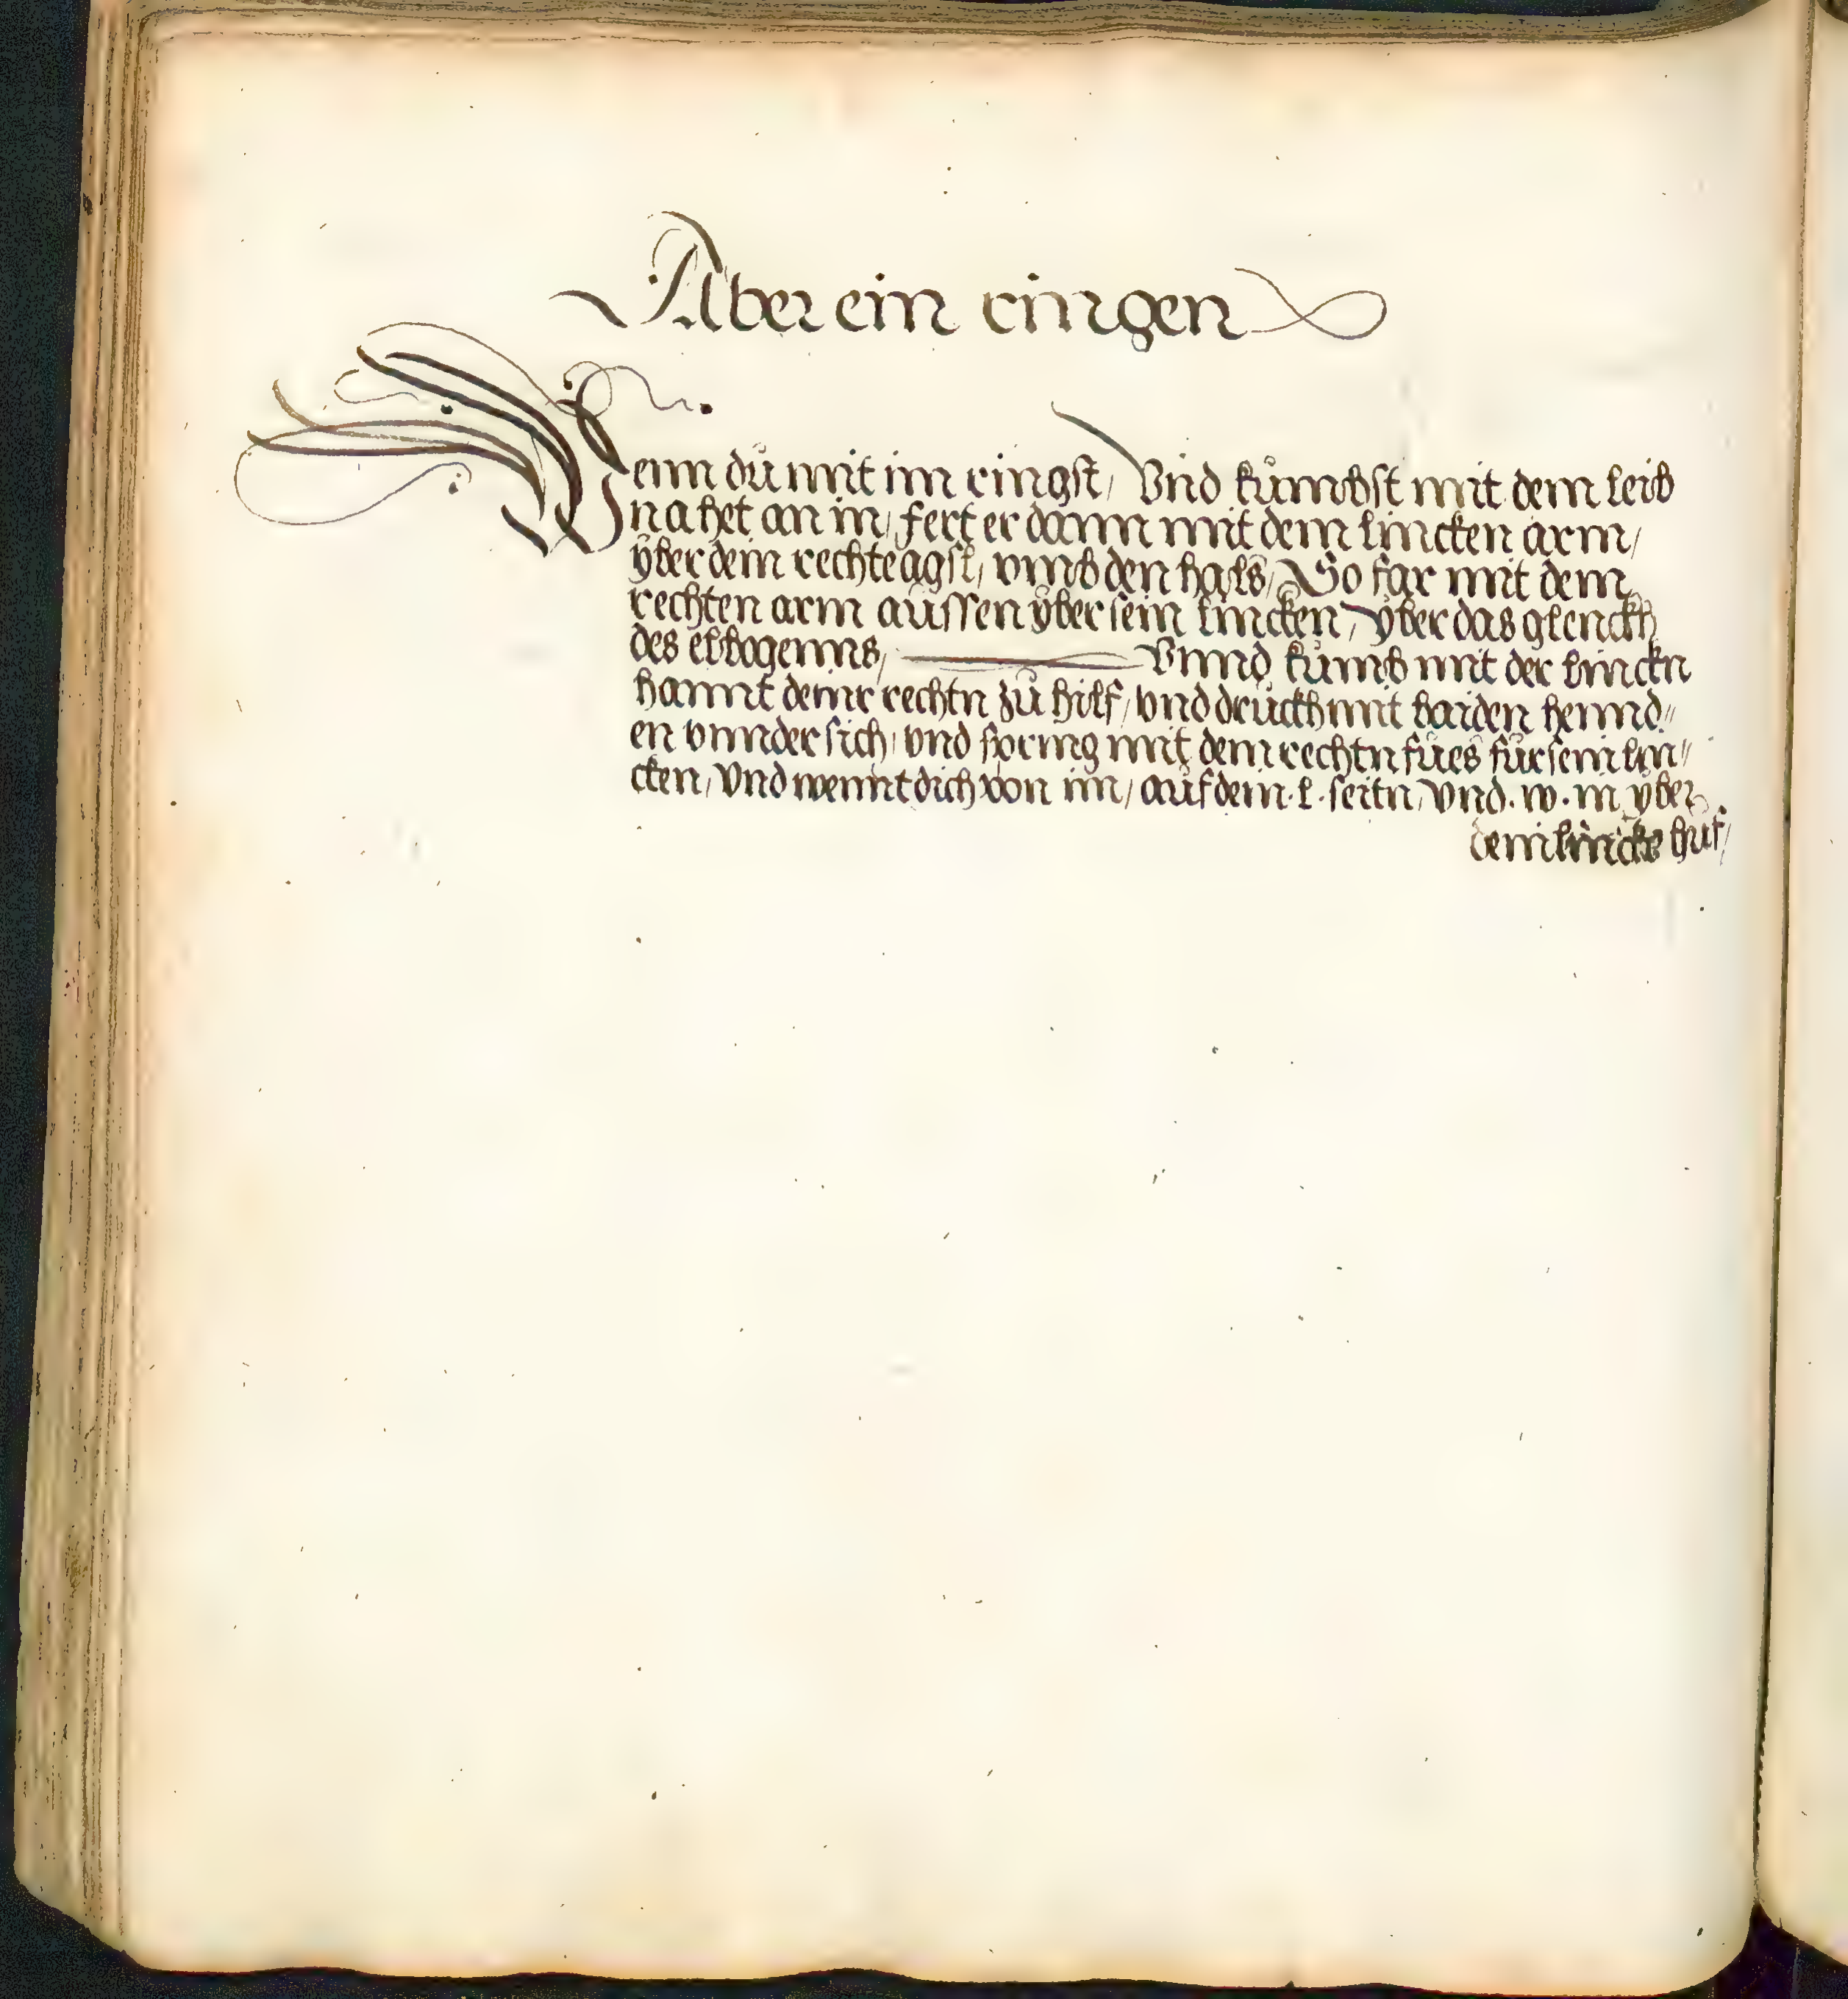 Aber ein ringen
Wenn dů mit im ringst, Vnd kůmbst mit dem leib
nahet an in, fert er dann mit dem lincken arm,
ÿber dein recht agsl, vmb den hals, So far mit dem
rechten arm aůssen ÿber sein lincken, ÿber das glenckh
des elbogenns, Vnnd kůmb mit der linckn
hannt deinr rechtn zů hilf, vnd drůckh mit baiden hennd„
en vnnder sich, vnd spring mit dem rechtn fůes fůr sein lin„
cken, Vnd wennt dich von im, aůf dein .l. seitn, vnd .w. in ÿber
dein lincke hůf,